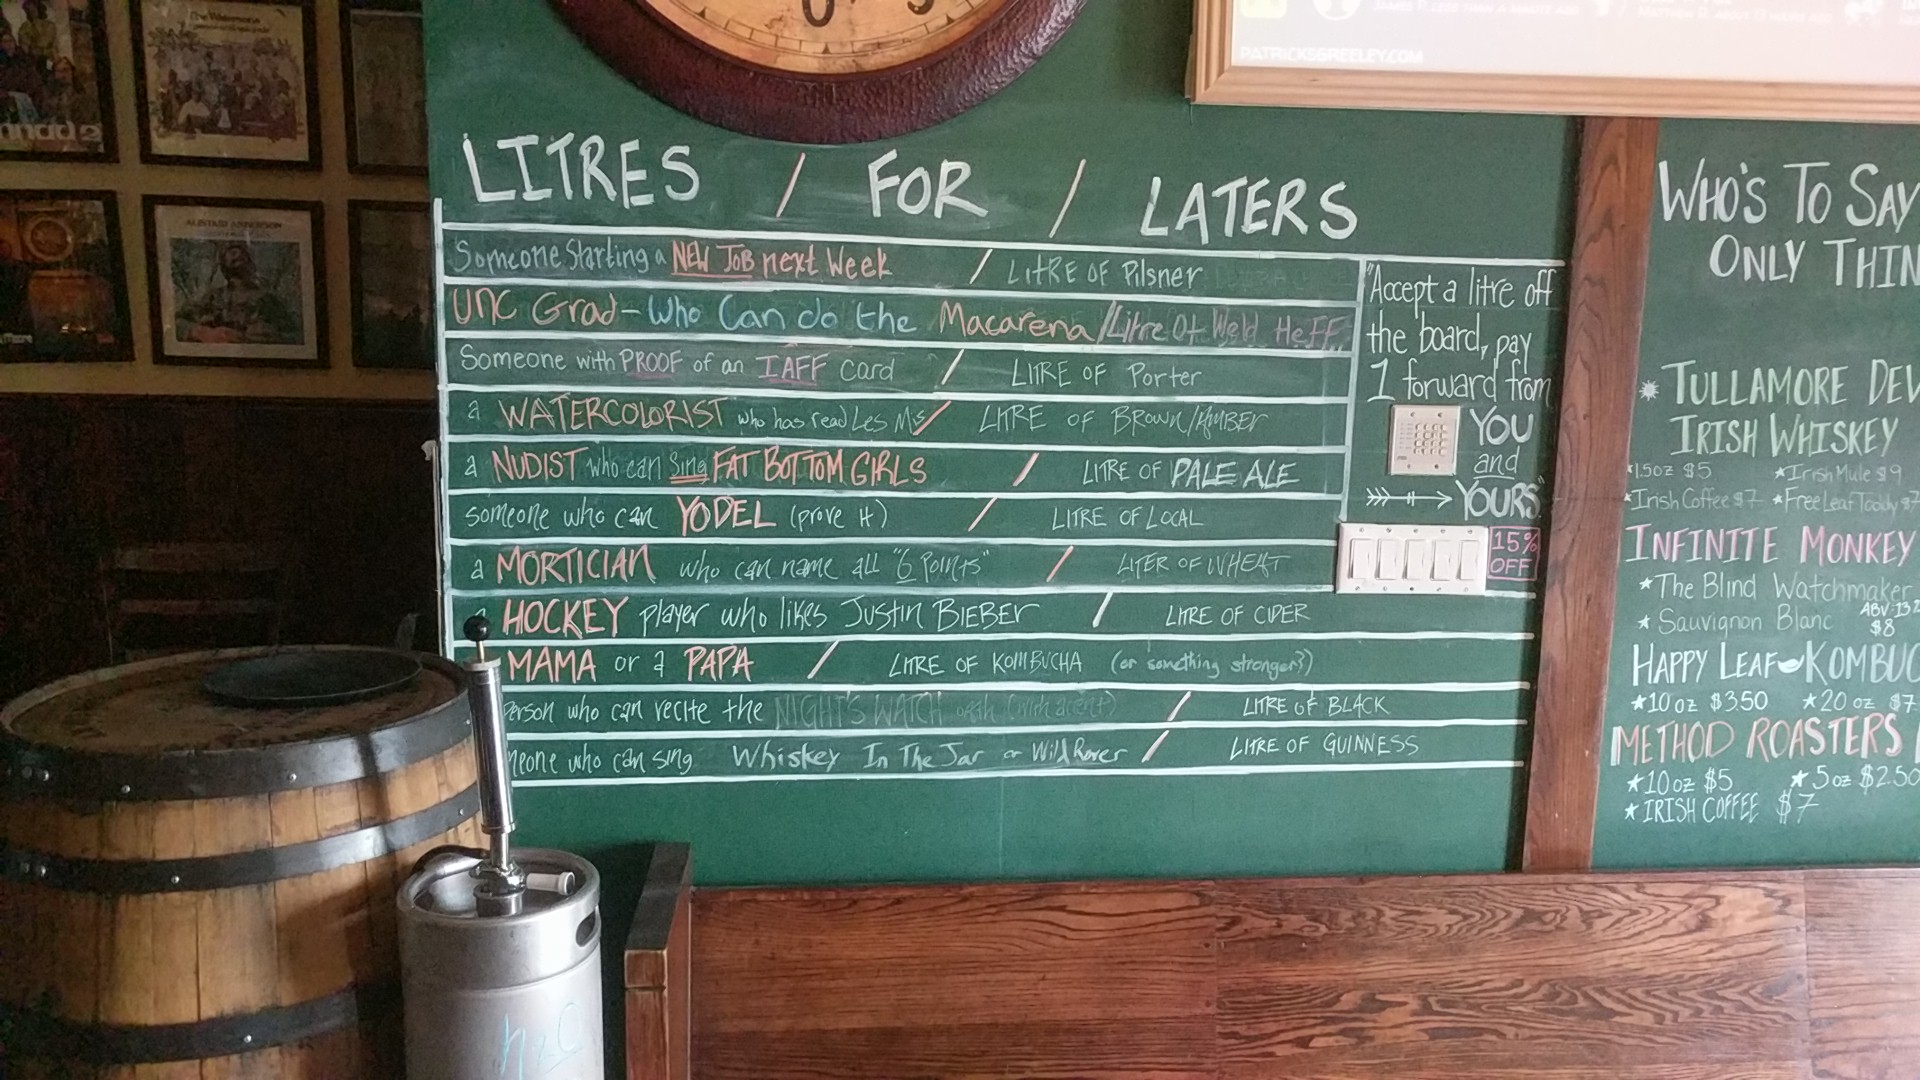 PATRICKSGREELEY.COM
LITRES / FOR / LATERS
Someone Starting a NEW JOB next Week / LITRE OF Pilsner
UNC Grad - Who Can do the Macarena / Litre Of Weld Heff.
Someone with PROOF of an IAFF card / LITRE OF Porter
a WATERCOLORIST who has read Les Mis / LITRE OF BROWN/AMBER
a NUDIST who can Sing FAT BOTTOM GIRLS / LITRE OF PALE ALE
someone who can YODEL (prove it) / LITRE OF LOCAL
a MORTICIAN who can name all "6 Points" / LITER OF WHEAT
a HOCKEY player who likes JUSTIN BIEBER / LITRE OF CIDER
MAMA or a PAPA / LITRE OF KOMBUCHA (or something stronger?)
Person who can recite the NIGHT'S WATCH oath (with accent) / LITRE OF BLACK
meone who can sing Whiskey In The Jar or Wild Rover / LITRE OF GUINNESS
"Accept a litre off
the board, pay
1 forward from
YOU
and
YOURS"
15%
OFF
WHO'S TO SAY
ONLY THIN
TULLAMORE DEW
IRISH WHISKEY
1.5oz $5 *Irish Mule $9
*Irish Coffee $7 *Free Leaf Toddy $7
INFINITE MONKEY
*The Blind Watchmaker
*Sauvignon Blanc
$8
HAPPY LEAF KOMBUC
*10 oz $3.50 *20 oz $7
METHOD ROASTERS
*10 oz $5 *5 oz $2.50
*IRISH COFFEE $7
ALISTAIR ANDERSON